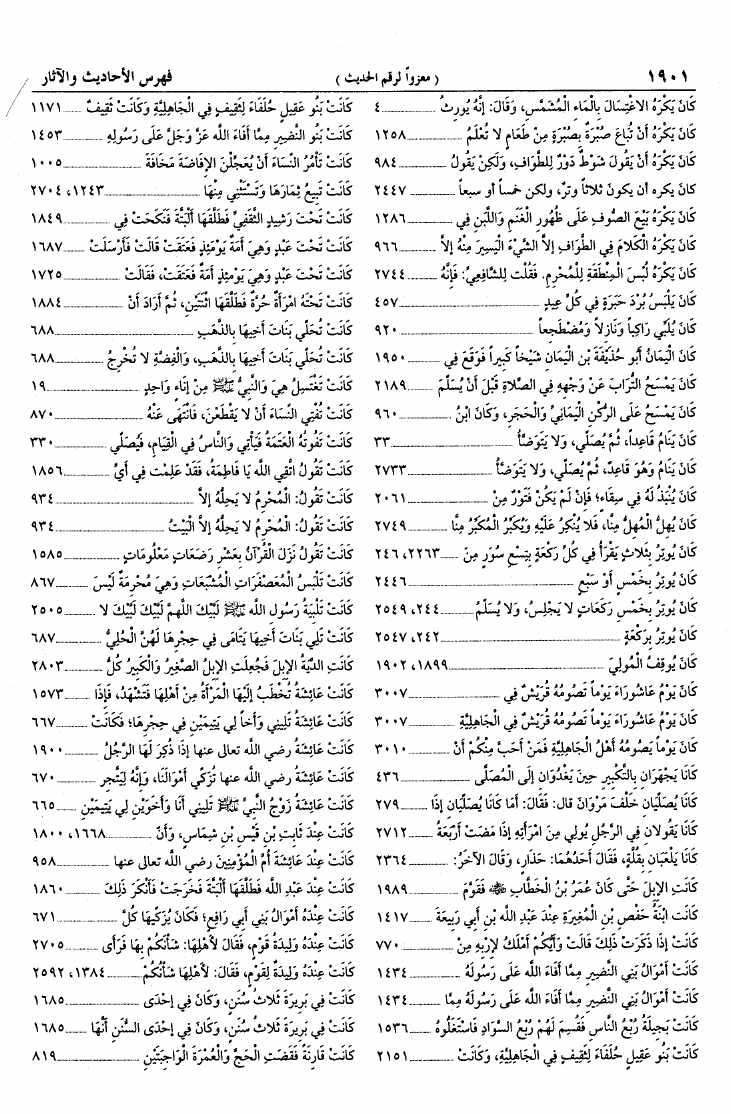 ١٩٠١
( معزواً لرقم الحديث )
فهرس الأحاديث والآثار
كَانَ يَكْرَهُ الاغْتِسَالَ بِالْمَاءِ الْمُشَمَّسِ، وَقَالَ: إِنَّهُ يُورِثُ ٤
كَانَ يَكْرَهُ أَنْ تُبَاعَ صُبْرَةٌ بِصُبْرَةٍ مِنْ طَعَامٍ لا تُعْلَمُ ١٢٥٨
كَانَ يَكْرَهُ أَنْ يَقُولَ شَوْطٌ دَوْرٌ لِلطَّوَافِ، وَلَكِنْ يَقُولُ ٩٨٤
كان يكره أن يكونَ ثلاثاً وترٌ، ولكن خمساً أو سبعاً ٢٤٤٧
كَانَ يَكْرَهُ بَيْعَ الصُّوفِ عَلَى ظُهُورِ الْغَنَمِ وَاللَّبَنِ فِي ١٢٨٦
كَانَ يَكْرَهُ الْكَلامَ فِي الطَّوَافِ إِلاَّ الشَّيْءَ الْيَسِيرَ مِنْهُ إِلاَّ ٩٦٦
كَانَ يَكْرَهُ لُبْسَ الْمِنْطَقَةِ لِلْمُحْرِمِ. فَقُلْت لِلشَّافِعِيِّ: فَإِنَّهُ ٢٧٤٤
كَانَ يَلْبَسُ بُرْدَ حَبَرَةٍ فِي كُلِّ عِيدٍ ٤٥٧
كَانَ يُلَبِّي رَاكِباً وَنَازِلاً وَمُضْطَجِعاً ٩٢٠
كَانَ الْيَمَانُ أَبُو حُذَيْفَةَ بْنِ الْيَمَانِ شَيْخاً كَبِيراً فَوَقَعَ فِي ١٩٥٠
كَانَ يَمْسَحُ التُّرَابَ عَنْ وَجْهِهِ فِي الصَّلاةِ قَبْلَ أَنْ يُسَلِّمَ ٢١٨٩
كَانَ يَمْسَحُ عَلَى الرُّكْنِ الْيَمَانِيِّ وَالْحَجَرِ، وَكَانَ ابْنُ ٩٦٠
كَانَ يَنَامُ قَاعِداً، ثُمَّ يُصَلِّي، وَلا يَتَوَضَّأُ ٣٣
كَانَ يَنَامُ وَهُوَ قَاعِدٌ، ثُمَّ يُصَلِّي، وَلا يَتَوَضَّأُ ٢٧٣٣
كَانَ يُنْبَذُ لَهُ فِي سِقَاءٍ؛ فَإِنْ لَمْ يَكُنْ فَتَوْرٌ مِنْ ٢٠٦١
كَانَ يُهِلُّ الْمُهِلُّ مِنَّا، فَلا يُنْكِرُ عَلَيْهِ وَيُكَبِّرُ الْمُكَبِّرُ مِنَّا ٢٧٤٩
كَانَ يُوتِرُ بِثَلاثٍ يَقْرَأُ فِي كُلِّ رَكْعَةٍ بِتِسْعِ سُوَرٍ مِنَ ٢٢٦٣، ٢٤٦
كَانَ يُوتِرُ بِخَمْسٍ أَوْ سَبْعٍ ٢٤٤٦
كَانَ يُوتِرُ بِخَمْسِ رَكَعَاتٍ لا يَجْلِسُ، وَلا يُسَلِّمُ ٢٤٤، ٢٥٤٩
كَانَ يُوتِرُ بِرَكْعَةٍ ٢٤٢، ٢٥٤٧
كَانَ يُوقِفُ الْمُولِيَ ١٨٩٩، ١٩٠٢
كَانَ يَوْمُ عَاشُورَاءَ يَوْماً تَصُومُهُ قُرَيْشٌ فِي ٣٠٠٧
كَانَ يَوْمُ عَاشُورَاءَ يَوْماً تَصُومُهُ قُرَيْشٌ فِي الْجَاهِلِيَّةِ ٣٠٠٧
كَانَ يَوْماً يَصُومُهُ أَهْلُ الْجَاهِلِيَّةِ فَمَنْ أَحَبَّ مِنْكُمْ أَنْ ٣٠١٠
كَانَا يَجْهَرَانِ بِالتَّكْبِيرِ حِينَ يَغْدُوَانِ إِلَى الْمُصَلَّى ٤٣٦
كَانَا يُصَلِّيَانِ خَلْفَ مَرْوَانَ قال: فَقَالَ: أَمَا كَانَا يُصَلِّيَانِ إِذَا ٢٧٩
كَانَا يَقُولانِ فِي الرَّجُلِ يُولِي مِنَ امْرَأَتِهِ إِذَا مَضَتْ أَرْبَعَةُ ٢٧١٢
كَانَا يَلْعَبَانِ بِقُلَّةٍ، فَقَالَ أَحَدُهُمَا: حَذَارِ، وَقَالَ الآخَرُ: ٢٣٦٤
كَانَتِ الإِبِلُ حَتَّى كَانَ عُمَرُ بْنُ الْخَطَّابِ ﷺ فَقَوَّمَ ١٩٨٩
كَانَتِ ابْنَةُ حَفْصِ بْنِ الْمُغِيرَةِ عِنْدَ عَبْدِ اللَّهِ بْنِ أَبِي رَبِيعَةَ ١٤١٧
كَانَتْ إِذَا ذَكَرَتْ ذَلِكَ قَالَتْ وَأَيُّكُمْ أَمْلَكُ لإِرْبِهِ مِنْ ٧٧٠
كَانَتْ أَمْوَالُ بَنِي النَّضِيرِ مِمَّا أَفَاءَ اللَّهُ عَلَى رَسُولَهُ ١٤٣٤
كَانَتْ أَمْوَالُ بَنِي النَّضِيرِ مِمَّا أَفَاءَ اللَّهُ عَلَى رَسُولَهُ مِمَّا ١٤٣٤
كَانَتْ بَجِيلَةُ رُبُعَ النَّاسِ فَقُسِمَ لَهُمْ رُبُعُ السَّوَادِ فَاسْتَغَلُّوهُ ١٥٣٦
كَانَتْ بَنُو عَقِيلٍ حُلَفَاءَ لِثَقِيفٍ فِي الْجَاهِلِيَّةِ، وَكَانَتْ ٢١٥١
كَانَتْ بَنُو عَقِيلٍ حُلَفَاءَ لِثَقِيفٍ فِي الْجَاهِلِيَّةِ وَكَانَتْ ثَقِيفٌ ١١٧١
كَانَتْ بَنُو النَّضِيرِ مِمَّا أَفَاءَ اللَّهُ عَزَّ وَجَلَّ عَلَى رَسُولِهِ ١٤٥٣
كَانَتْ تَأْمُرُ النِّسَاءَ أَنْ يُعَجِّلْنَ الإِفَاضَةَ مَخَافَةَ ١٠٠٥
كَانَتْ تَبِيعُ ثِمَارَهَا وَتَسْتَثْنِي مِنْهَا ١٢٤٣، ٢٧٠٤
كَانَتْ تَحْتَ رَشِيدٍ الثَّقَفِيِّ فَطَلَّقَهَا أَلْبَتَّةَ فَنَكَحَتْ فِي ١٨٤٩
كَانَتْ تَحْتَ عَبْدٍ وَهِيَ أَمَةٌ يَوْمَئِذٍ فَعَتَقَتْ قَالَتْ فَأَرْسَلَتْ ١٦٨٧
كَانَتْ تَحْتَ عَبْدٍ وَهِيَ يَوْمِئِذٍ أَمَةٌ فَعَتَقَتْ، فَقَالَتْ ١٧٢٥
كَانَتْ تَحْتَهُ امْرَأَةٌ حُرَّةٌ فَطَلَّقَهَا اثْنَتَيْنِ، ثُمَّ أَرَادَ أَنْ ١٨٨٤
كَانَتْ تُحَلِّي بَنَاتَ أَخِيهَا بِالذَّهَبِ ٦٨٨
كَانَتْ تُحَلِّي بَنَاتَ أَخِيهَا بِالذَّهَبِ، وَالْفِضَّةِ لا تُخْرِجُ ٦٨٨
كَانَتْ تَغْتَسِلُ هِيَ وَالنَّبِيُّ ﷺ مِنْ إِنَاءٍ وَاحِدٍ ١٩
كَانَتْ تُفْتِي النِّسَاءَ أَنْ لا يَقْطَعْنَ، فَانْتَهَى عَنْهُ ٨٧٠
كَانَتْ تَفُوتُهُ الْعَتَمَةُ فَيَأْتِي وَالنَّاسُ فِي الْقِيَامِ، فَيُصَلِّي ٣٣٠
كَانَتْ تَقُولُ اتَّقِي اللَّهَ يَا فَاطِمَةُ، فَقَدْ عَلِمْتِ فِي أَيِّ ١٨٥٦
كَانَتْ تَقُولُ: الْمُحْرِمُ لا يَحِلُّهُ إِلاَّ ٩٣٤
كَانَتْ تَقُولُ: الْمُحْرِمُ لا يَحِلُّهُ إِلاَّ الْبَيْتُ ٩٣٤
كَانَتْ تَقُولُ نَزَلَ الْقُرْآنُ بِعَشْرِ رَضَعَاتٍ مَعْلُومَاتٍ ١٥٨٥
كَانَتْ تَلْبَسُ الْمُعَصْفَرَاتِ الْمُشَبَّعَاتِ وَهِيَ مُحْرِمَةٌ لَيْسَ ٨٦٧
كَانَتْ تَلْبِيَةُ رَسُولِ اللَّهِ ﷺ لَبَّيْكَ اللَّهُمَّ لَبَّيْكَ لَبَّيْكَ لا ٢٥٠٥
كَانَتْ تَلِي بَنَاتَ أَخِيهَا يَتَامَى فِي حِجْرِهَا لَهُنَّ الْحُلِيُّ ٦٨٧
كَانَتِ الدِّيَةُ الإِبِلَ فَجُعِلَتِ الإِبِلُ الصَّغِيرُ وَالْكَبِيرُ كُلُّ ٢٨٠٣
كَانَتْ عَائِشَةُ تُخْطَبُ إِلَيْهَا الْمَرْأَةُ مِنْ أَهْلِهَا فَتَشْهَدُ، فَإِذَا ١٥٧٣
كَانَتْ عَائِشَةُ تَلِينِي وَأَخاً لِي يَتِيمَيْنِ فِي حِجْرِهَا؛ فَكَانَتْ ٦٦٧
كَانَتْ عَائِشَةُ رضي الله تعالى عنها إِذَا ذُكِرَ لَهَا الرَّجُلُ ١٩٠٠
كَانَتْ عَائِشَةُ رضي الله عنها تُزَكِّي أَمْوَالَنَا، وَإِنَّهُ لِيَتَّجِر ٦٧٠
كَانَتْ عَائِشَةُ زَوْجُ النَّبِيِّ ﷺ تَلِينِي أَنَا وَأَخَوَيْنِ لِي يَتِيمَيْنِ ٦٦٥
كَانَتْ عِنْدَ ثَابِتِ بْنِ قَيْسِ بْنِ شِمَاسٍ، وَأَنَّ ١٦٦٨، ١٨٠٠
كَانَتْ عِنْدَ عَائِشَةَ أُمِّ الْمُؤْمِنِينَ رضي الله تعالى عنها ٩٥٨
كَانَتْ عِنْدَ عَبْدِ اللَّهِ فَطَلَّقَهَا أَلْبَتَّةَ فَخَرَجَتْ فَأَنْكَرَ ذَلِكَ ١٨٦٠
كَانَتْ عِنْدَهُ أَمْوَالُ بَنِي أَبِي رَافِعٍ؛ فَكَانَ يُزَكِّيهَا كُلَّ ٦٧١
كَانَتْ عِنْدَهُ وَلِيدَةُ قَوْمٍ، فَقَالَ لأَهْلِهَا: شَأْنَكُمْ بِهَا فَرَأَى ٢٧٠٥
كَانَتْ عِنْدَهُ وَلِيدَةٌ لِقَوْمٍ، فَقَالَ: لأَهْلِهَا شَأْنُكُمْ ١٣٨٤، ٢٥٩٢
كَانَتْ فِي بَرِيرَةَ ثَلاثُ سُنَنٍ، وَكَانَ فِي إِحْدَى ١٦٨٥
كَانَتْ فِي بَرِيرَةَ ثَلاثُ سُنَنٍ، وَكَانَ فِي إِحْدَى السُّنَنِ أَنَّهَا ١٦٨٥
كَانَتْ قَارِنَةً فَقَضَتِ الْحَجَّ وَالْعُمْرَةَ الْوَاجِبَتَيْنِ ٨١٩